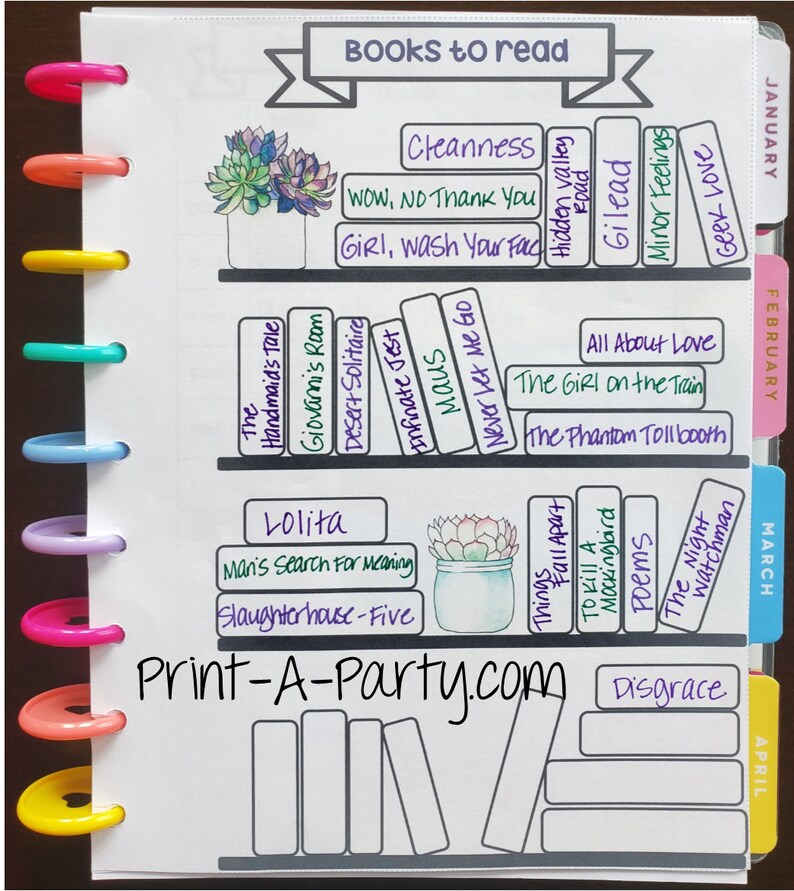 Books to read
Cleanness
WOW, NO Thank You
Girl, Wash Your Fac
Hidden Valley
Road
Gilead
Minor Feelings
Geek Love
The
Handmaid's Tale
Giovanni's Room
Desert Solitaire
Infinate Jest
Maus
Never Let Me Go
All About Love
The Girl on the Train
The Phantom Tollbooth
Lolita
Man's Search For Meaning
Slaughterhouse-Five
Things
Fall Apart
To Kill A
Mockingbird
Poems
The Night
Watchman
Print-A-Party.com
Disgrace
JANUARY
FEBRUARY
MARCH
APRIL